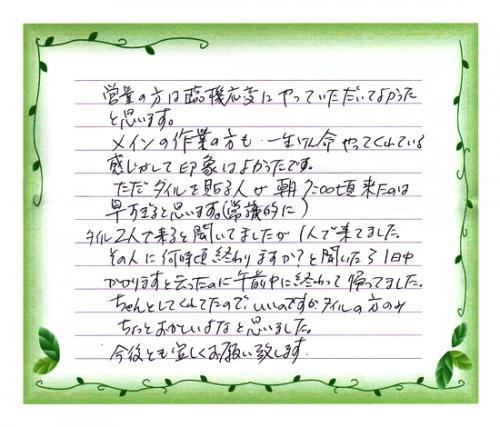 営業の方は臨機応変にやっていただいてよかった
と思います。
メインの作業の方も一生けん命やってくれている
感じがして印象はよかったです。
ただタイルを貼る人が朝7:00頃来たのは
早すぎると思います。(常識的に)
タイル2人で来ると聞いてましたが1人で来てました。
その人に何時頃終わりますか?と聞いたら1日中
かかりますと云ったのに午前中に終わって帰ってました。
ちゃんとしてくれてたので、いいのですがタイルの方のみ
ちょっとおかしいよなと思いました。
今後とも宜しくお願い致します.